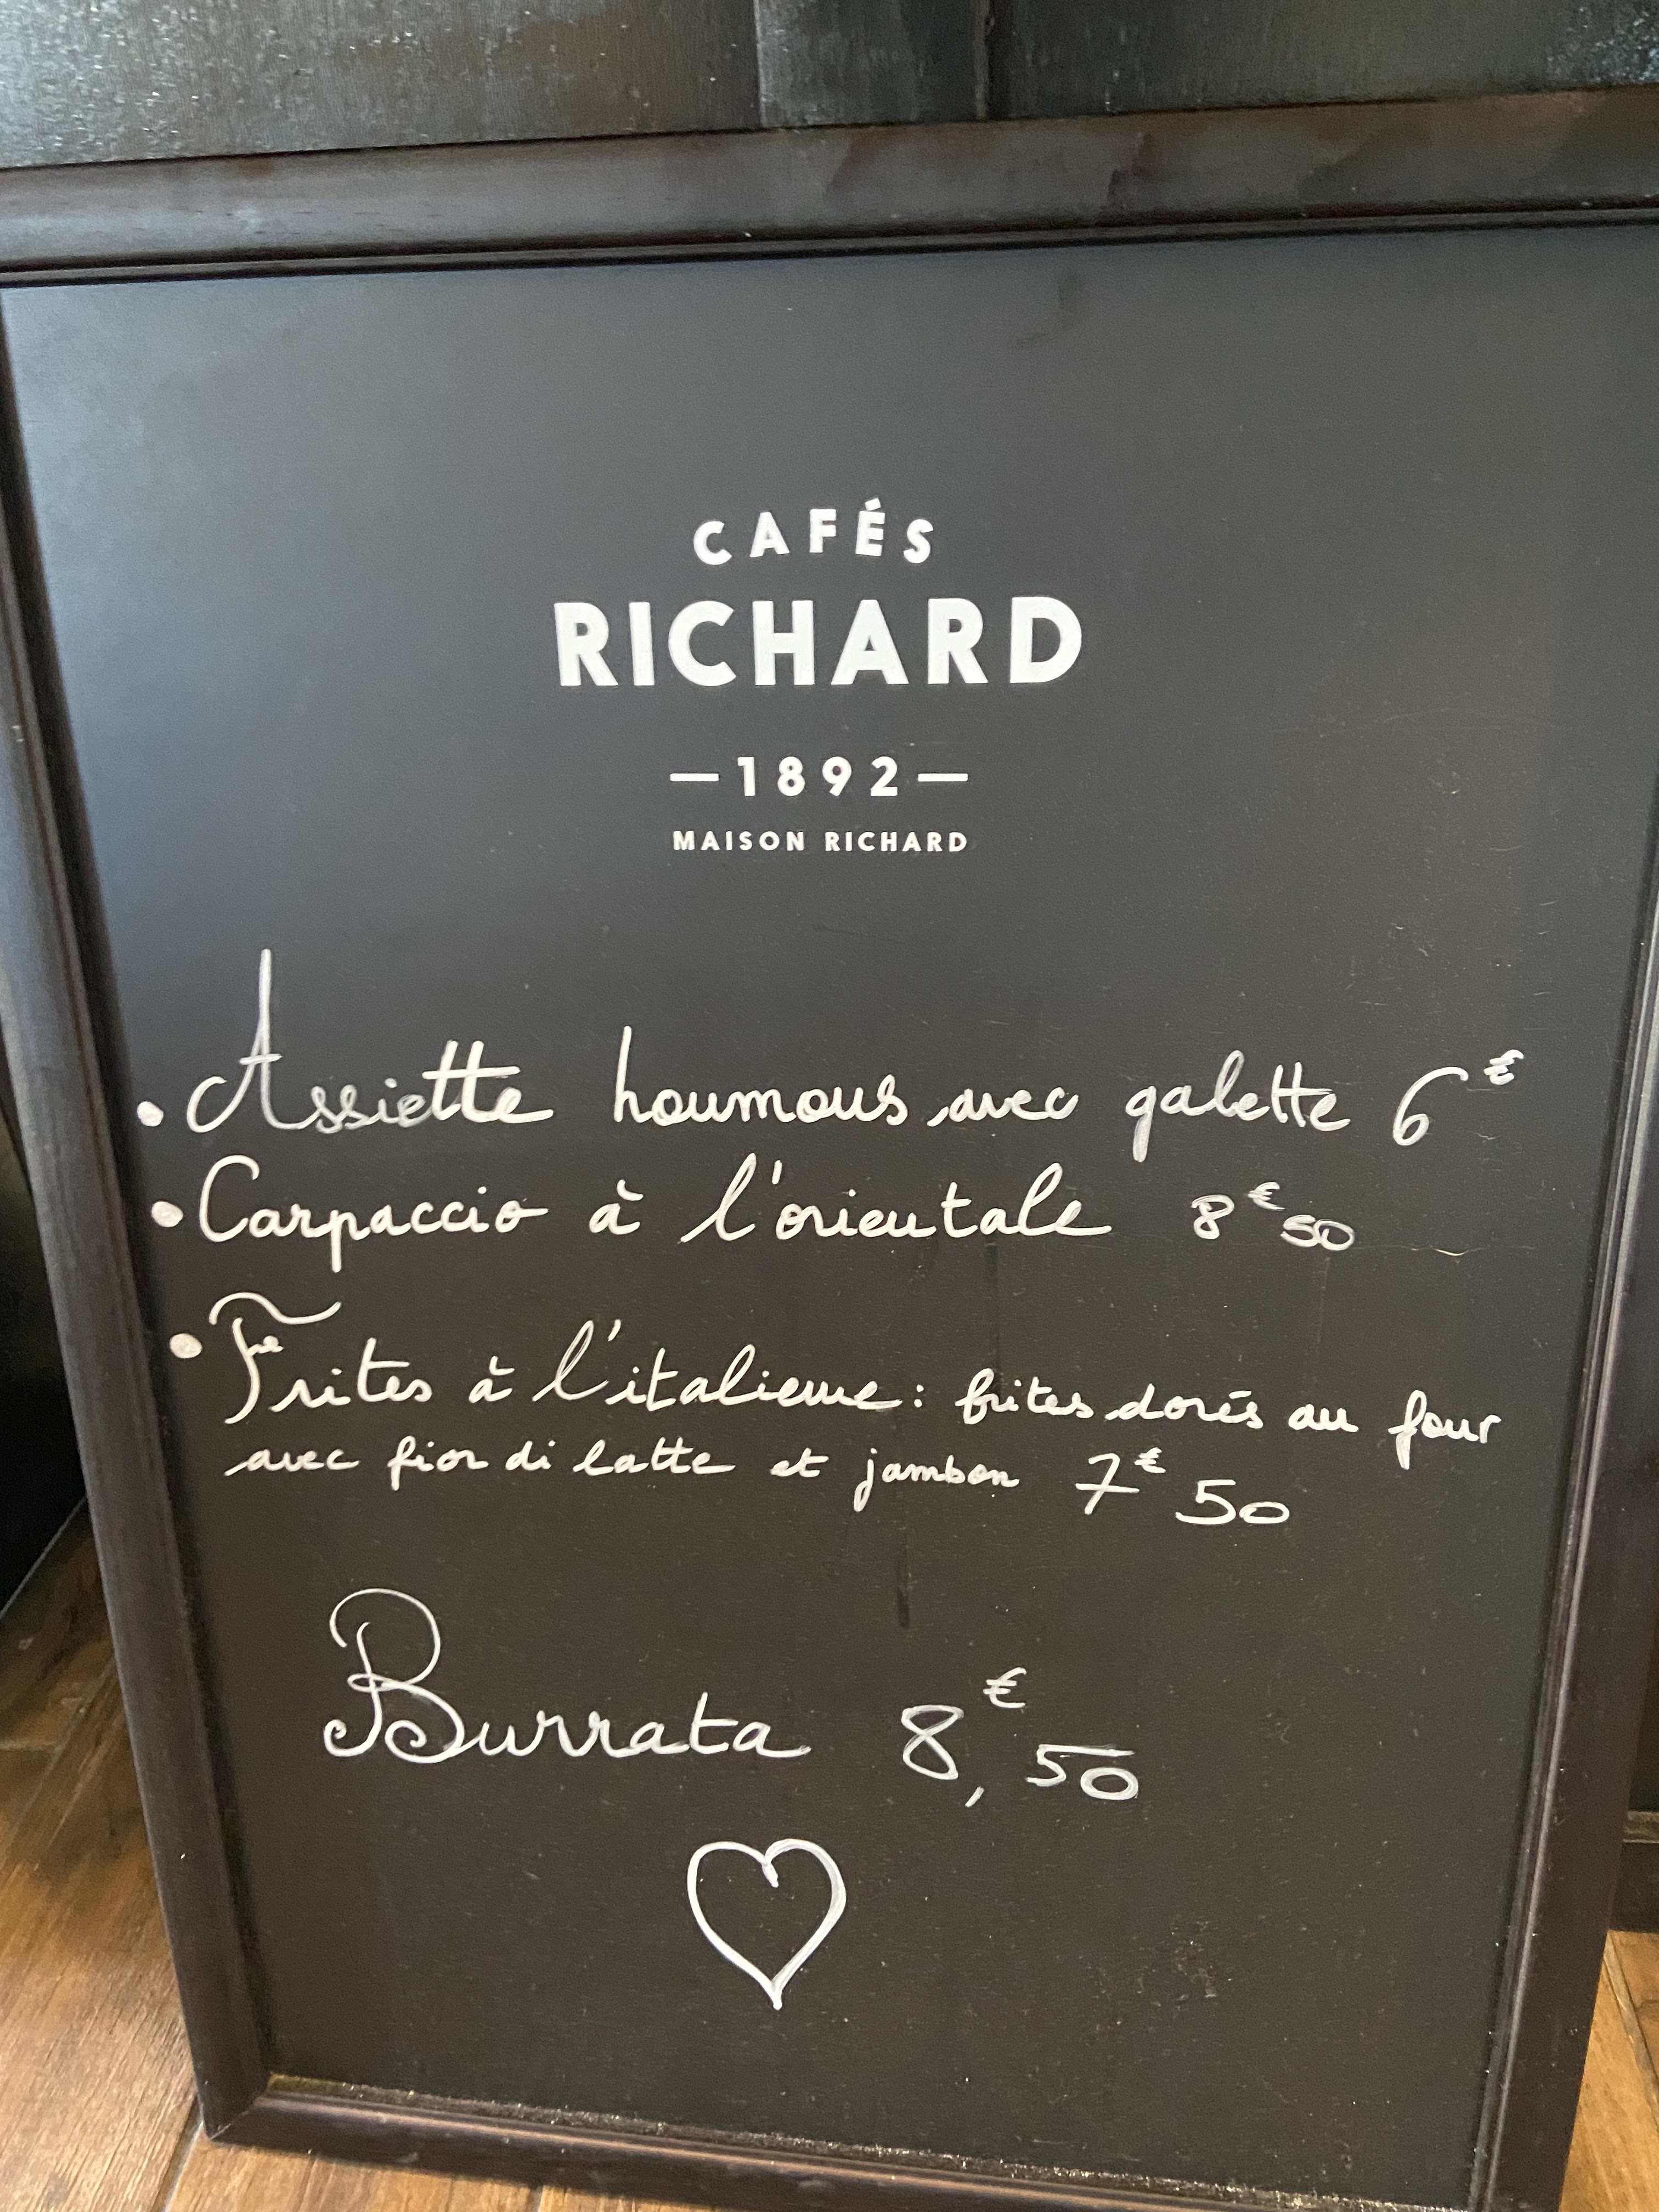 CAFÉS
RICHARD
—1892—
MAISON RICHARD
• Assiette houmous avec galette 6€
• Carpaccio à l'orientale 8€50
• Frites à l'italienne : frites dorés au four
avec fior di latte et jambon 7€50
Burrata 8€,50